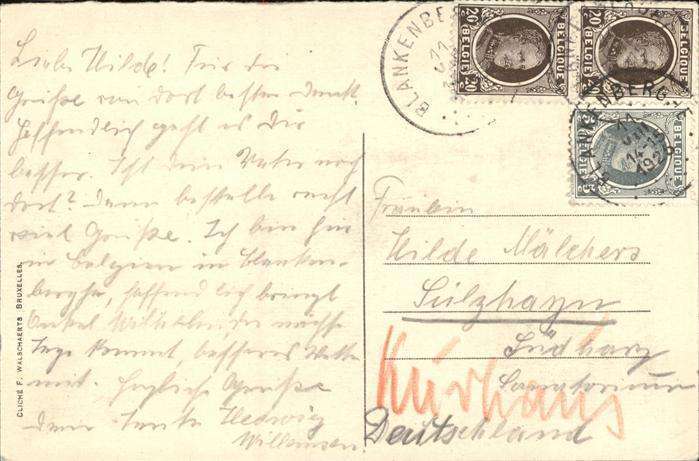 Liebe Hilde! Für die
Grüße von dort besten Dank.
Hoffendlich geht es dir
besser. Ist dein Vater noch
dort? Dann bestelle recht
viel Grüße. Ich bin hier
in Belgien in Blanken-
berghe, hoffendlich bringt
Onkel Wilhelm, der nächste
Tage kommt, besseres Wetter
mit. Herzliche Grüße
dein Tante Hedwig
Willemsen
CLICHÉ F. WALSCHAERTS BRUXELLES
BLANKENBERG
11
20 BELGIQUE 20
BELGIË
20 BELGIQUE
BELGIË 20
BELGIQUE
Fräulein
Hilde Mälchers
Sülzhayn
Südharz
Sanatorium
Kurhaus
Deutschland